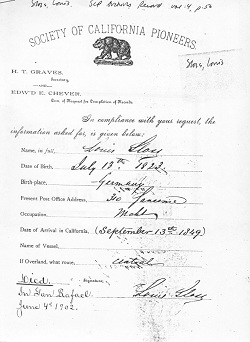 Sloss, Louis. SCP Archives Record vol. 4, p. 50
Sloss, Louis
SOCIETY OF CALIFORNIA PIONEERS.
H. T. GRAVES,
Secretary.
EDW'D E. CHEVER,
Com. of Request for Completion of Records.
In compliance with your request, the
information asked for, is given below:
Name, in full, Louis Sloss
Date of Birth, July 13th 1823
Birth-place, Germany
Present Post Office Address, 30 Sansome
Occupation, Mcht
Date of Arrival in California, (September 13th 1849)
Name of Vessel,
If Overland, what route, central
Died. Signature, Louis Sloss
In San Rafael.
June 4th 1902.